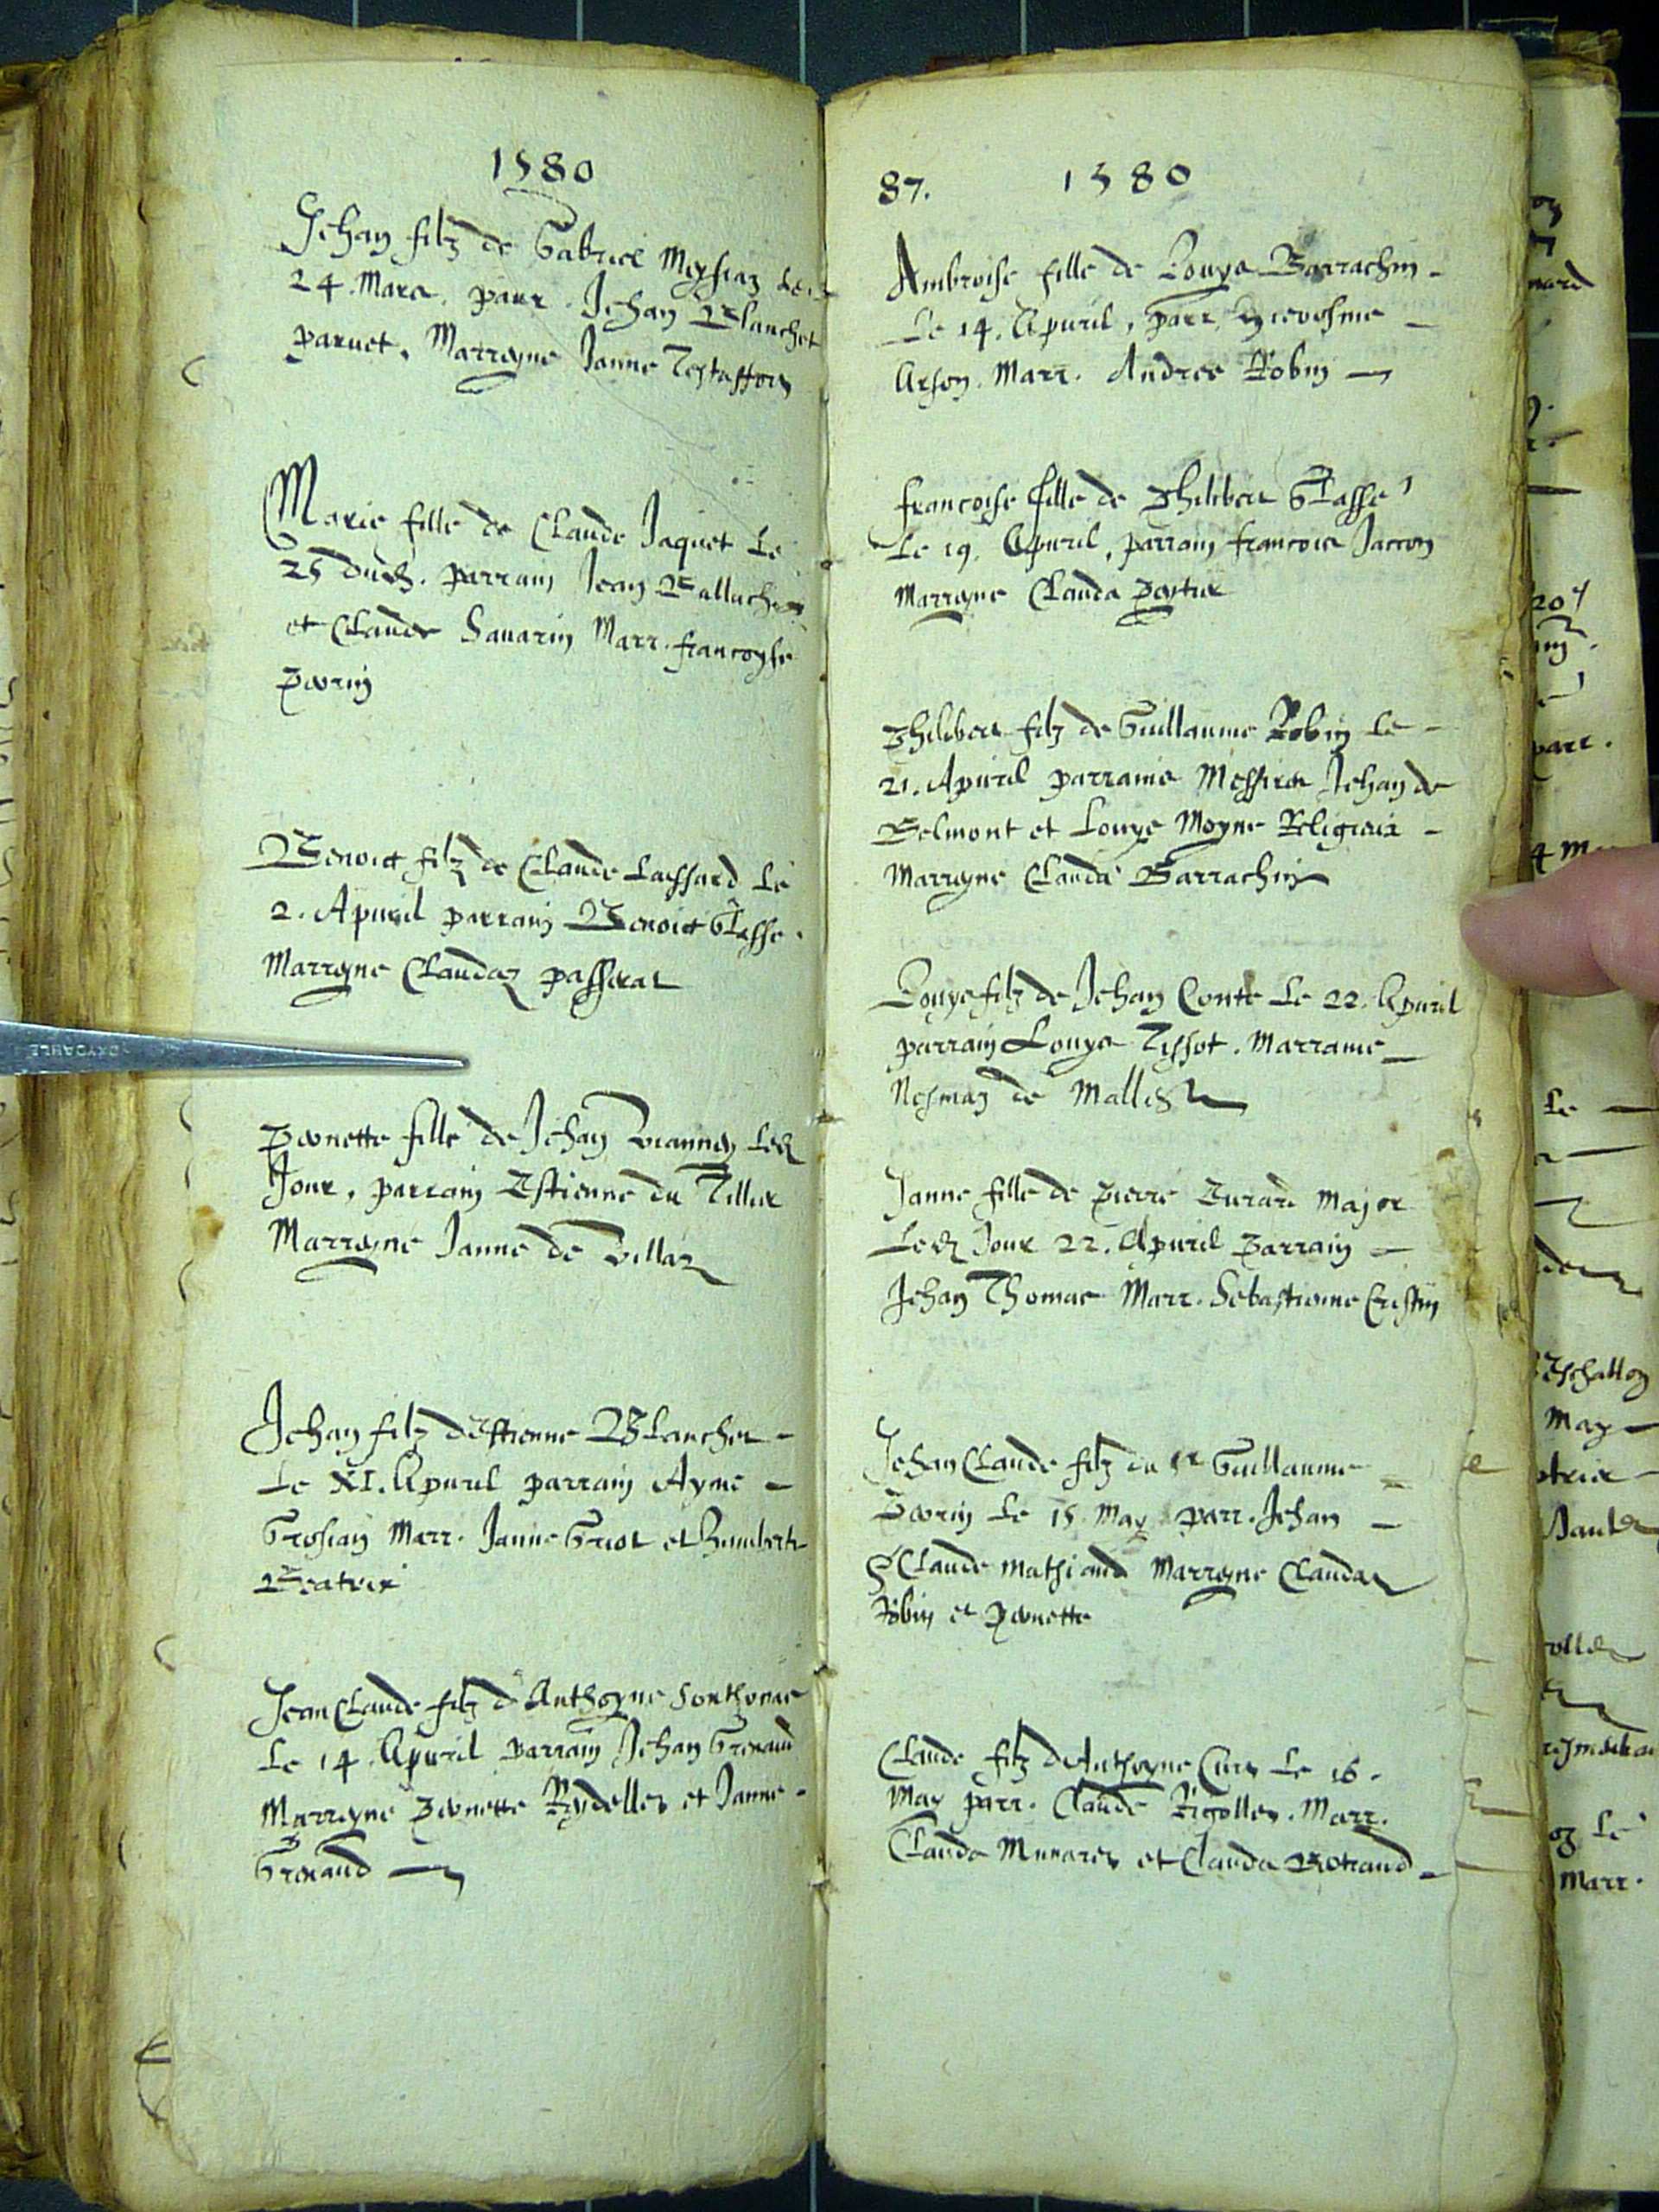 1580
Jehan filz de Gabriel Meysiaz le
24. Mars. parr. Jehan Blanchet
paruet. Marrayne Janne
Marie fille de Claude Jaquet le
25 dud. parrain Jean
et Claude Sauarin Marr. francoyse
Perrin
Benoict filz de Claude Laissard le
2. Apuril parrain Benoict
Marrayne Claudaz passerat
Pernette fille de Jehan Vianney led
Jour, parrain Estienne du Tillier
Marrayne Janne de Villaz
Jehan filz dEstienne Blanchet -
Le XI. Apuril parrain Ayme -
Marr. Janne Griot et Humberte
Beatrix
Jean Claude filz d'Anthoyne Sonthonas
Le 14. Apuril parrain Jehan Grenaud
Marrayne Pernette et Janne -
Grenaud
87. 1580
Ambroise fille de Louys Barrachin -
Le 14. Apuril, parr. Hierosme -
Arson. Marr. Andree Robin
francoise fille de Philibert
Le 19. Apuril, parrain francois Jacron
Marrayne Clauda
Philibert filz de Guillaume Robin le -
21. Apuril parrains Messires Jehan de
Belmont et Louys Moyne Religieux -
Marrayne Clauda Barrachin
Louys filz de Jehan Conte le 22. Apuril
parrain Louys Tissot. Marraine
de
Janne fille de Pierre Durard Major
Led Jour 22. Apuril Parrain -
Jehan Thomas Marr. Sebastienne Cristin
Jehan Claude filz du Sr Guillaume
Perrin le 15 May parr. Jehan -
Claude Mathiaud Marrayne Claudaz
Robin et pernette
Claude filz dAnthoyne le 16.
May parr. Claude Rigollet. Marr.
Clauda et Clauda